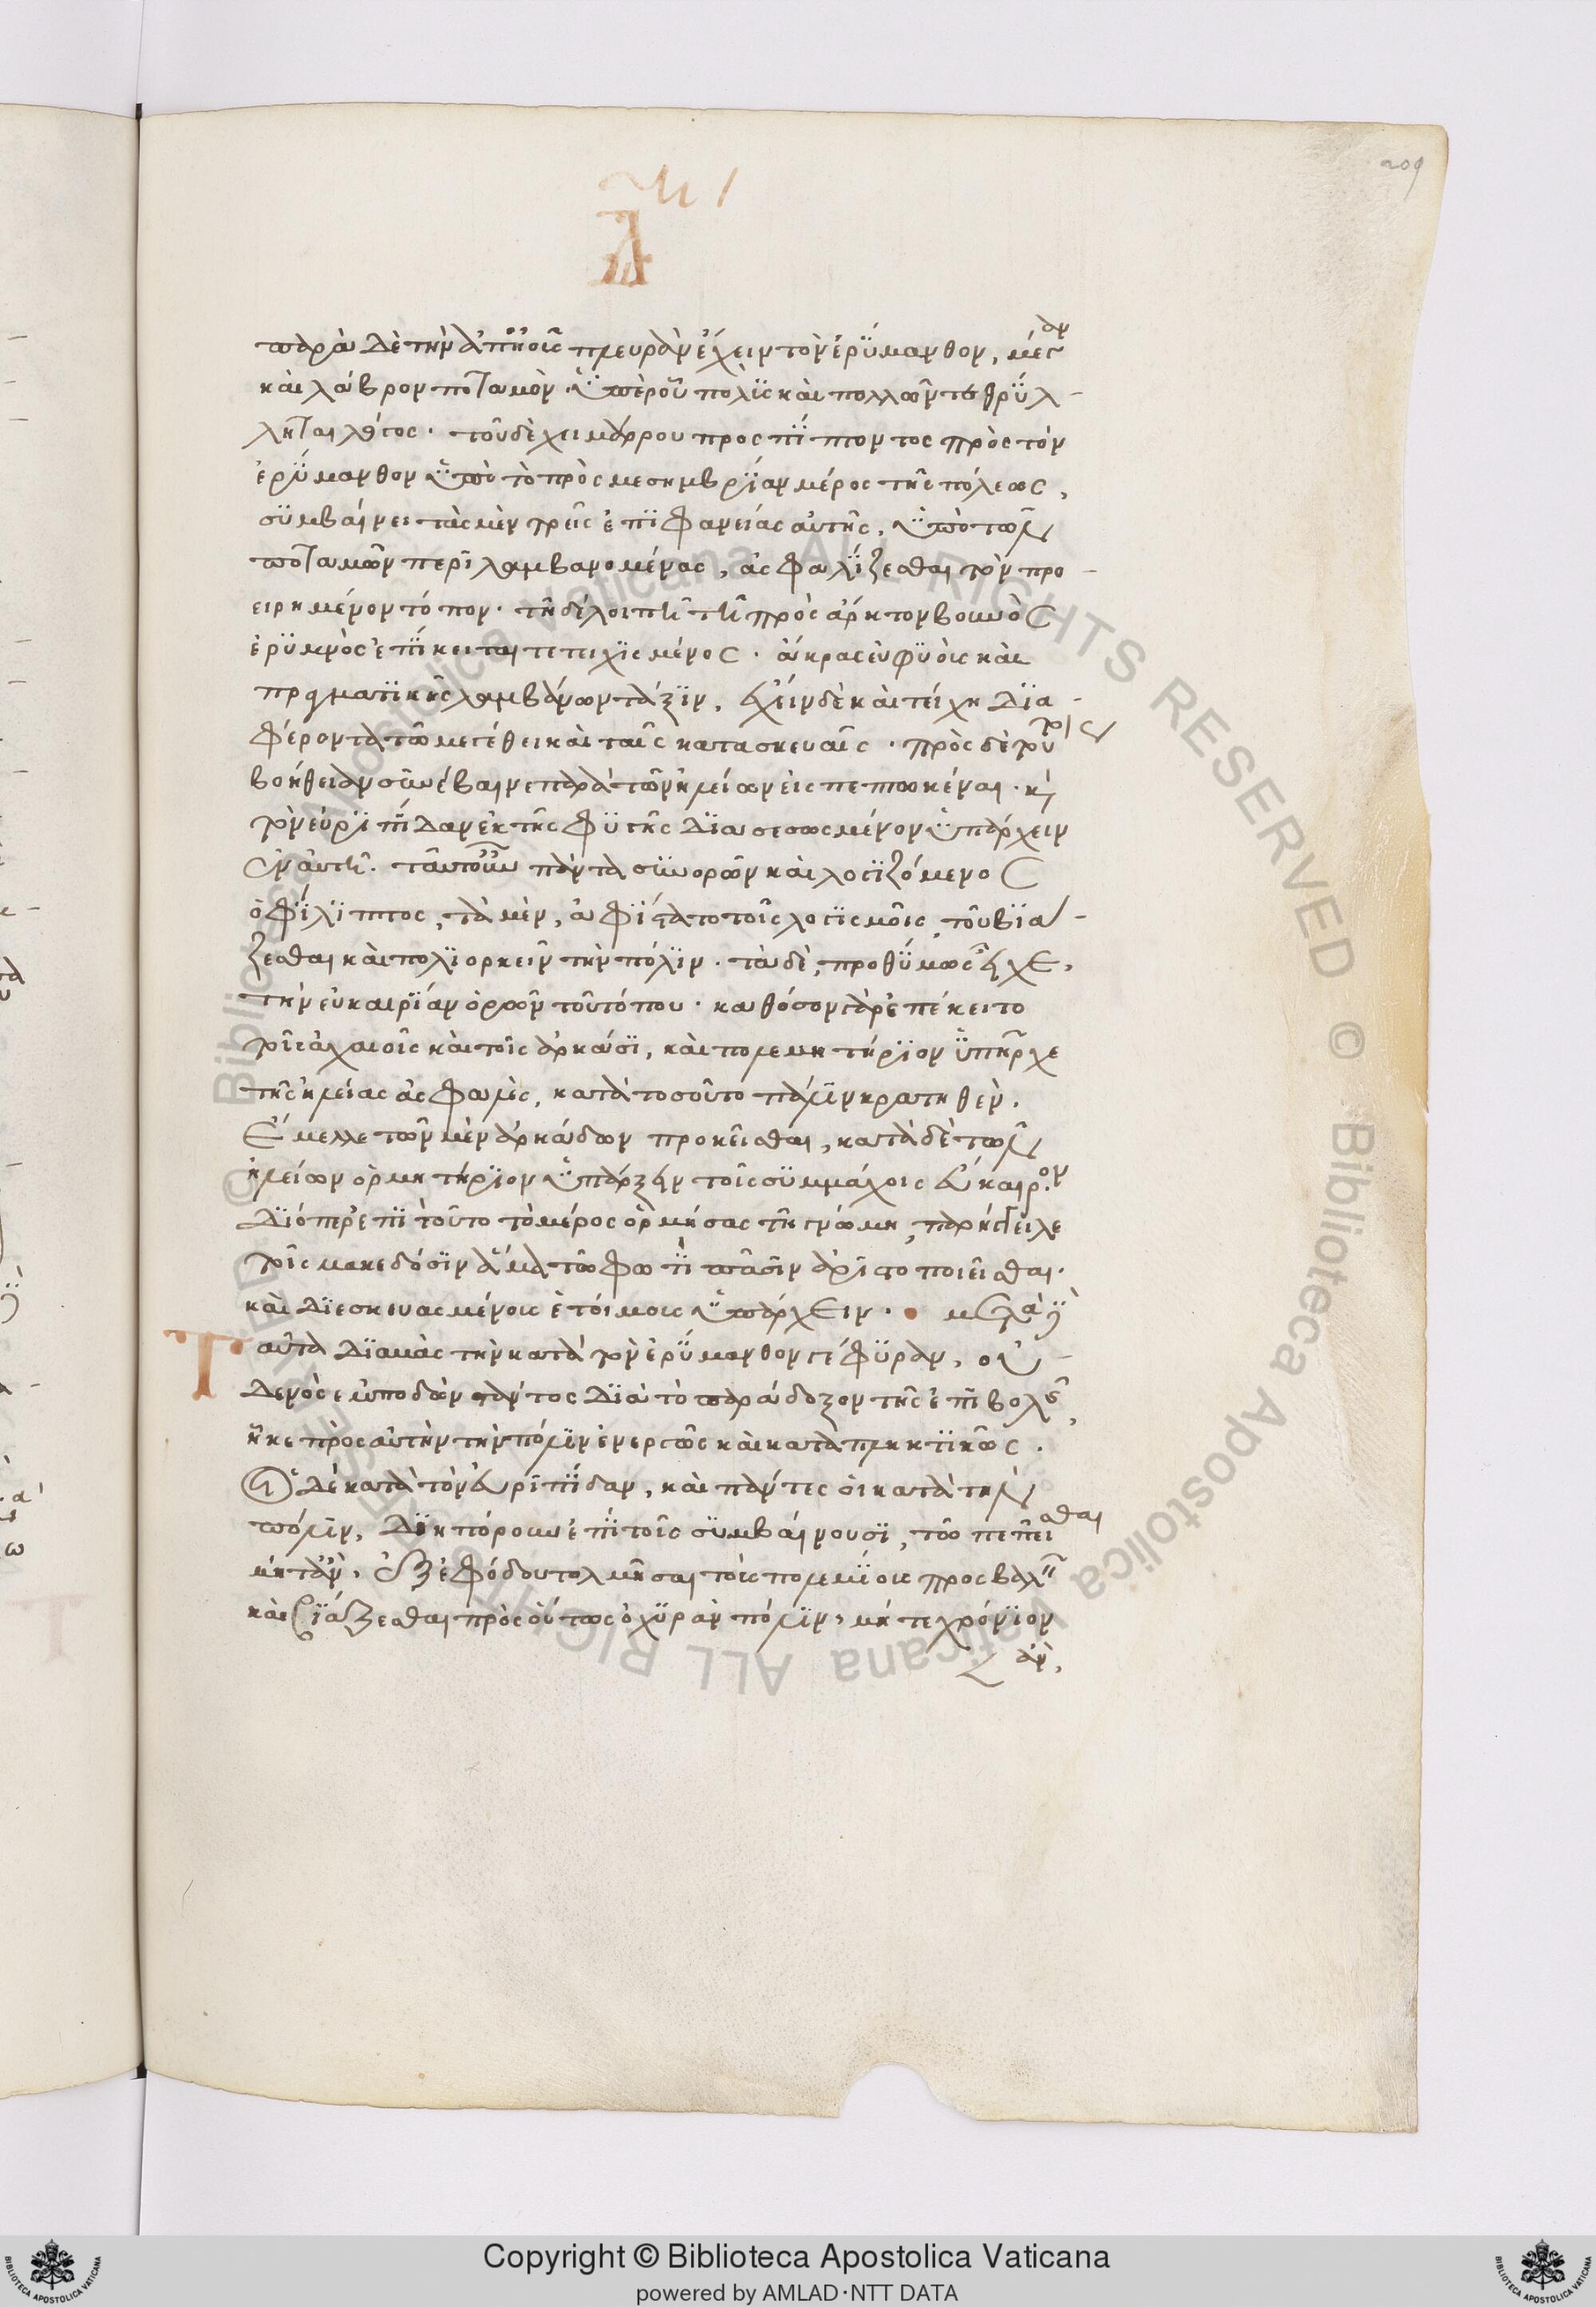 209
Δ
παρὰ δὲ τὴν ἀπηοῖς πλευρὰν ἔχειν τὸν ἐρύμανθον, μέγαν
καὶ λάβρον ποταμὸν. ὑπὲρ οὗ πολὺς καὶ πολλῶν τεθρύλ-
ληται λόγος. τοῦ δὲ χειμάρρου προσπίπτοντος πρὸς τὸν
ἐρύμανθον ὑπὸ τὸ πρὸς μεσημβρίαν μέρος τῆς πόλεως,
συμβαίνει τὰς μὲν τρεῖς ἐπιφανείας αὐτῆς, ὑπὸ τῶν
ποταμῶν περιλαμβανομένας, ἀσφαλίζεσθαι τὸν προ-
ειρημένον τόπον. τῇ δὲ λοιπῇ τῇ πρὸς ἄρκτον βουνὸς
ἐρυμνὸς ἐπίκειται τετειχισμένος. ἄκρας εὐφυοῖς καὶ
πραγματικῆς λαμβάνων τάξιν, ἔχειν δὲ καὶ τείχη δια-
φέροντα τῶ μεγέθει καὶ ταῖς κατασκευαῖς. πρὸς δὲ τούτοις
βοήθειαν συνέβαινε παρὰ τῶν ἠλείων εἰσπεπτωκέναι. καὶ
τὸν εὐριπίδαν ἐκ τῆς φυγῆς διασεσωσμένον ὑπάρχειν
ἐν αὐτῇ. ταῦτ' οὖν πάντα συνορῶν καὶ λογιζόμενος
ὁ φίλιππος, τὰ μὲν, ἀφίστατο τοῖς λογισμοῖς, τοῦ βιά-
ζεσθαι καὶ πολιορκεῖν τὴν πόλιν. τὰ δὲ, προθύμως εἶχε,
τὴν εὐκαιρίαν ὁρῶν τοῦ τόπου. καθόσον γὰρ ἐπέκειτο
τοῖς ἀχαιοῖς καὶ τοῖς ἀρκάσι, καὶ πολεμητήριον ὑπῆρχε
τῆς ἠλείας ἀσφαλὲς, κατὰ τοσοῦτο πάλιν κρατηθὲν.
ἔμελλε τῶν μὲν ἀρκάδων προκεῖσθαι, κατὰ δὲ τῶν
ἠλείων ὁρμητήριον ὑπάρξειν τοῖς συμμάχοις εὔκαιρον.
διόπερ ἐπὶ τοῦτο τὸ μέρος ὁρμήσας τῇ γνώμῃ, παρήγγειλε
τοῖς μακεδόσιν ἅμα τῶ φωτὶ πᾶσιν ἀριστοποιεῖσθαι.
καὶ διεσκευασμένοις ἑτοίμοις ὑπάρχειν. μετὰ δὲ
Ταῦτα διαβὰς τὴν κατὰ τὸν ἐρύμανθον γέφυραν, οὐ-
δενὸς ἐμποδὼν στάντος διὰ τὸ παράδοξον τῆς ἐπιβολῆς,
ἧκε πρὸς αὐτὴν τὴν πόλιν ἐνεργῶς καὶ καταπληκτικῶς.
οἱ δὲ κατὰ τὸν εὐριπίδαν, καὶ πάντες οἱ κατὰ τὴν
πόλιν, διηπόρουν ἐπὶ τοῖς συμβαίνουσι, τῶ πεπεῖσθαι
μήτ' ἂν, ἐξ ἐφόδου τολμῆσαι τοὺς πολεμίους προσβαλεῖν
καὶ βιάζεσθαι πρὸς οὕτως ὀχυρὰν πόλιν, μήτε χρόνιον
ἂν,